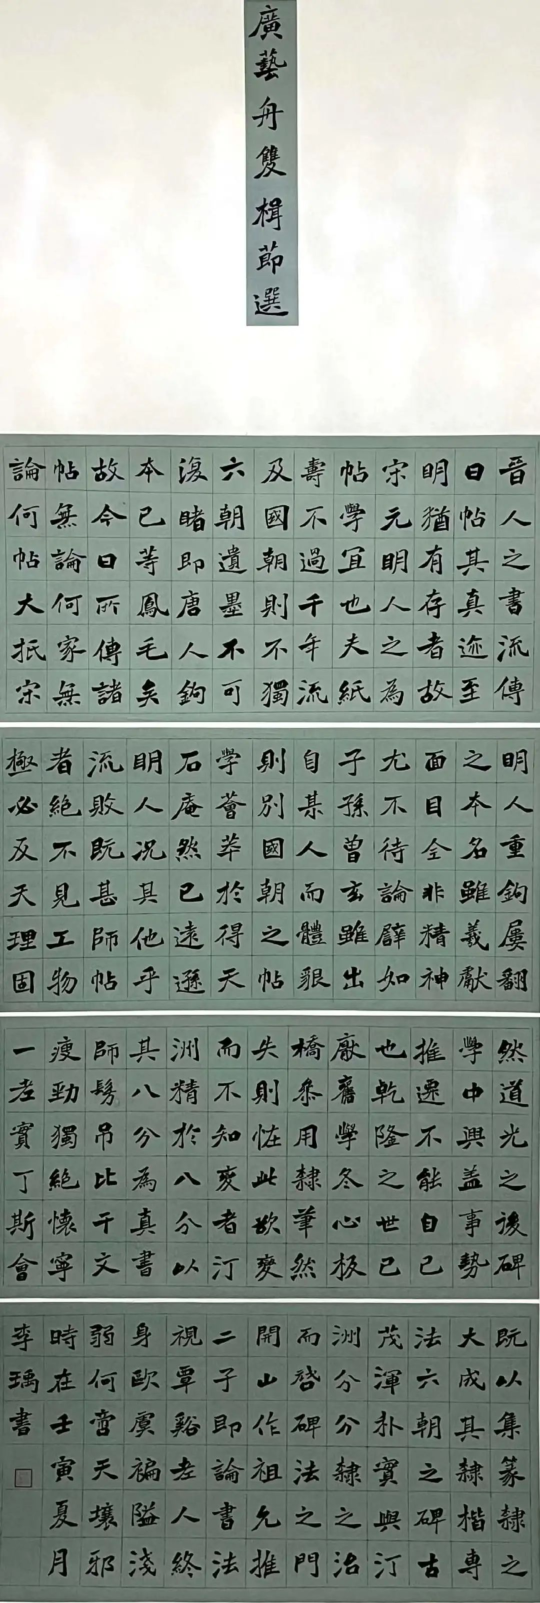 廣藝舟雙楫節選
晋人之書流傳
曰帖其真迹至
明猶有存者故
宋元明人之為
帖學宜也夫紙
壽不過千年流
及國朝則不獨
六朝遺墨不可
復睹即唐人鉤
本已等鳳毛矣
故今日所傳諸
帖無論何家無
論何帖大抵宋
明人重鉤屢翻
之本名雖羲獻
面目全非精神
尤不待論譬如
子孫曾玄雖出
自某人而體貌
則別國朝之帖
學薈萃於得天
石庵然已遠遜
明人況其他乎
流敗既甚師帖
者絕不見工物
極必反天理固
然道光之後碑
學中興盖事勢
推遷不能自已
也乾隆之世已
厭舊學冬心板
橋叅用隸筆然
失則怪此欲變
而不知變者汀
洲精於八分以
其八分為真書
師髣吊比干文
瘦勁獨絕懷寧
一老實丁斯會
既以集篆隸之
大成其隸楷專
法六朝之碑古
茂渾朴實與汀
洲分分隸之治
而啓碑法之門
開山作祖允推
二子即論書法
視覃谿老人終
身歐虞褊隘淺
弱何啻天壤邪
時在壬寅夏月
李瑀書